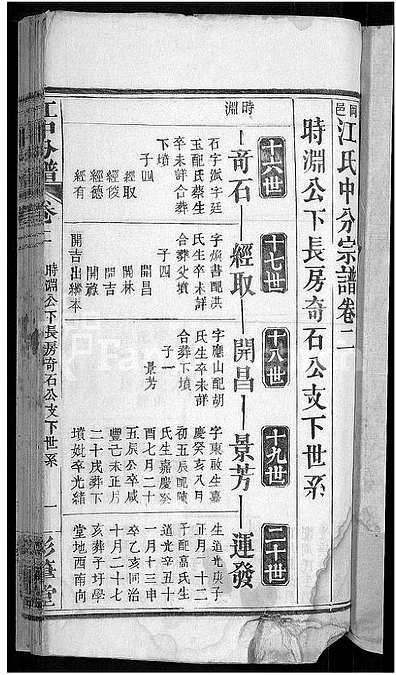 岡邑江氏中分宗譜卷二
時淵公下長房奇石公支下世系
十六世
十七世
十八世
十九世
二十世
時淵
奇石
經取
開昌
景芳
運發
石字
玉配氏蔡生
卒未詳合葬
下墳
子四
經取
經俊
經德
經有
字煥書配洪
氏生卒未詳
合葬父墳
子四
開昌
開林
開吉
開祿
開吉出繼本
字應山配胡
氏生卒未詳
合葬下墳
子一
景芳
字東啟生嘉
慶癸亥八月
初五辰配曉
氏生嘉慶癸
酉七月二十
五辰公卒咸
豐己未正月
二十戌葬下
墳妣卒光緒
生道光庚子
正月二十二
子配嘉氏生
道光辛丑十
一月十三申
卒乙亥同治
十月二十七
亥葬子圩學
堂地酉南向
江中分譜
卷二
時淵公下長房奇石公支下世系
一
彩筆堂